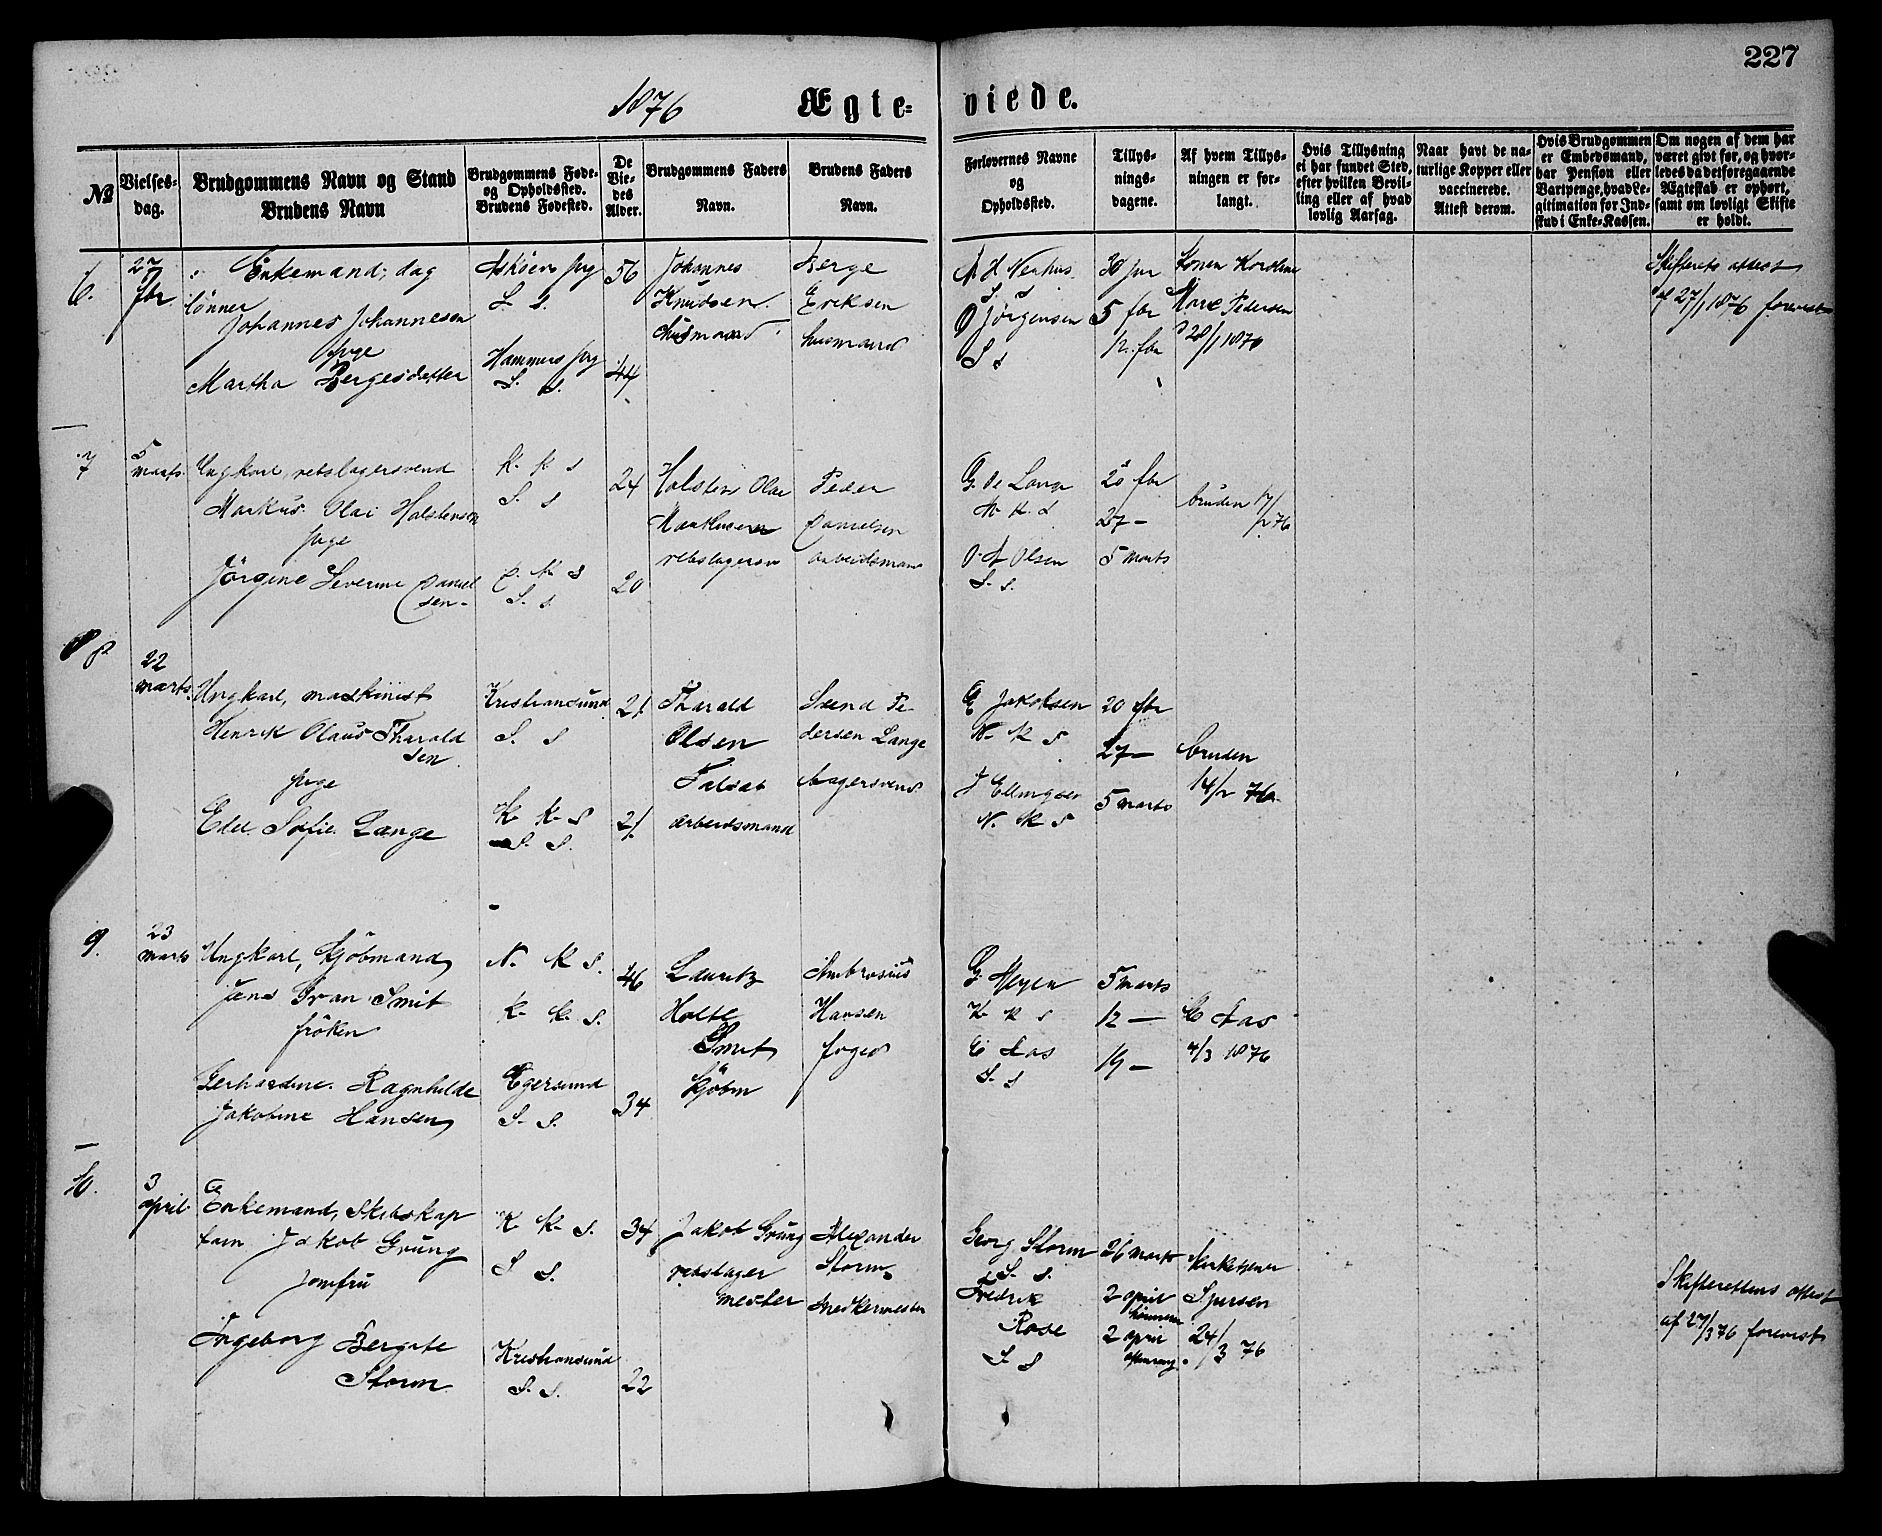 227
1876 Ægte= viede.
№
Vielses-
dag.
Brudgommens Navn og Stand
Brudens Navn
Brudgommens Føde-
og Opholdssted.
Brudens Fødested.
De
Vie-
des
Alder.
Brudgommens Faders
Navn.
Brudens Faders
Navn.
Forlovernes Navne
og
Opholdssted.
Tillys-
nings-
dagene.
Af hvem Tillys-
ningen er for-
langt.
Hvis Tillysning
ei har fundet Sted,
efter hvilken Bevil-
ling eller af hvad
lovlig Aarsag.
Naar havt de na-
turlige Kopper eller
vaccinerede.
Attest derom.
Hvis Brudgommen
er Embedsmand,
har Pension eller
Vartpenge, hvad Le-
gitimation for Ind-
skud i Enke-Kassen.
Om nogen af dem har
været givt før, og hvor-
ledes da det foregaaende
Ægteskab er ophørt,
samt om lovligt Skifte
er holdt.
6.
27
fbr
Enkemand, dag
lönner
Johannes Johannesen
pige
Martha Bergesdatter
Asköens prg
S. S.
Hammers prg
S. S.
56
44
Johannes
Knudsen
husmand
Berge
Eriksen
husmand
S S
O Jörgensen
S s
30 jnr
5 fbr
12 fbr
Konen Karoline
Marie Pedersen
28/1 1876
Skifterets attest
af 27/1 1876 forevist
7
5
marts
Ungkarl, rebslagersvend
Markus Olai Holstensen
pige
Jörgine Severine Daniel
sen
K. K s
S. s
K s
S. s
24
20
Holsten Olai
Markussen
rebslagersv
Peder
Danielsen
arbeidsmand
G. de Lange
N. K. s
O A Olsen
S. s.
20 fbr
27 –
5 marts
bruden 17/2 76
8
22
marts
Ungkarl, maskinist
Henrik Olaus Tharald
sen
pige
Edel Sofie Lange
Kristiansund
S. S
K. K. S
S. S.
21
21
Tharald
Olsen
arbeidsmand
Svend Pe-
dersen Lange
bagersvend
E Jakobsen
N. K S
J Ellingsen
N. K S
20 fbr
27 –
5 marts
bruden
14/2 76
9.
23
marts
Ungkarl, Kjöbmand
Jens Ivan Smit
fröken
Gerhardine Ragnhilde
Jakobine Hansen
N. K S.
K. K. S.
Egersund
S. S.
46
34
Lauritz
Holte
Smit
Kjöbm
Ambrosius
Hansen
foged
G. Meyer
K. K S
C Aas
S. S
5 marts
12 –
19 –
C Aas
4/3 1876
10.
3
april
Enkemand, Skibskap
tain Jakob Grung
jomfru
Ingeborg Bergite
Storm
K K. S.
S S.
Kristiansund
S. S.
34
22
Jakob Grung
rebslager
mester
Alexander
Storm
snedkermester
Georg Storm
S. S.
Fredrik
Rose
S S
26 marts
2 april
2 april
Kirketjener
Iversen
24/3 76
Skifterettens attest
af 27/3 76 forevist